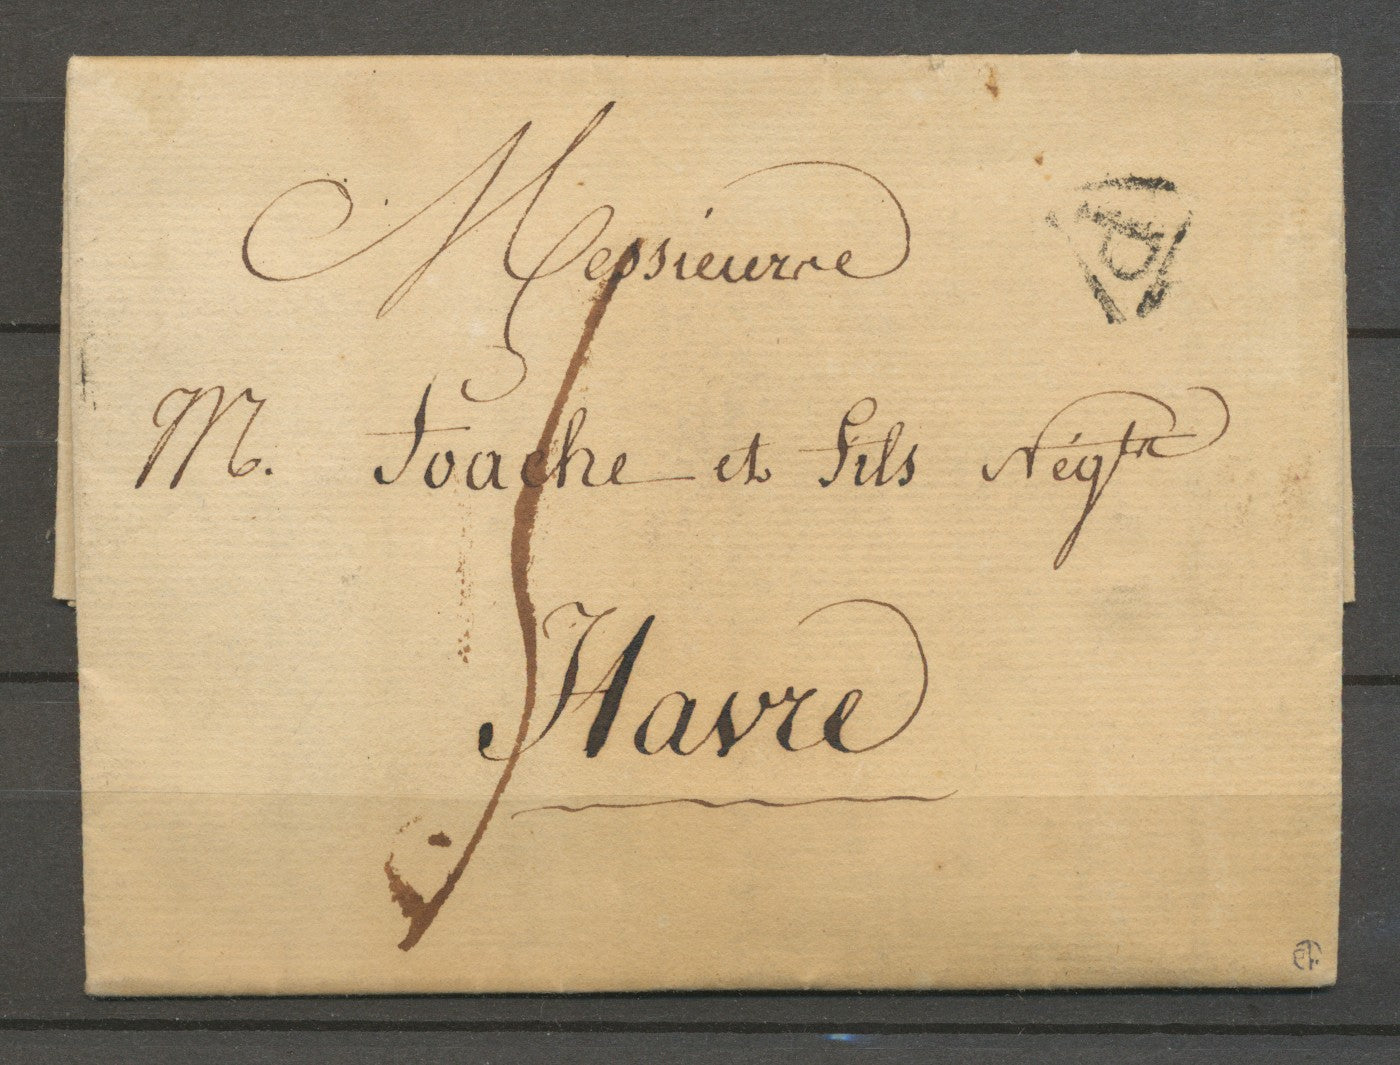 Messieurs
P
M. Foache et Fils Négts
Havre
5